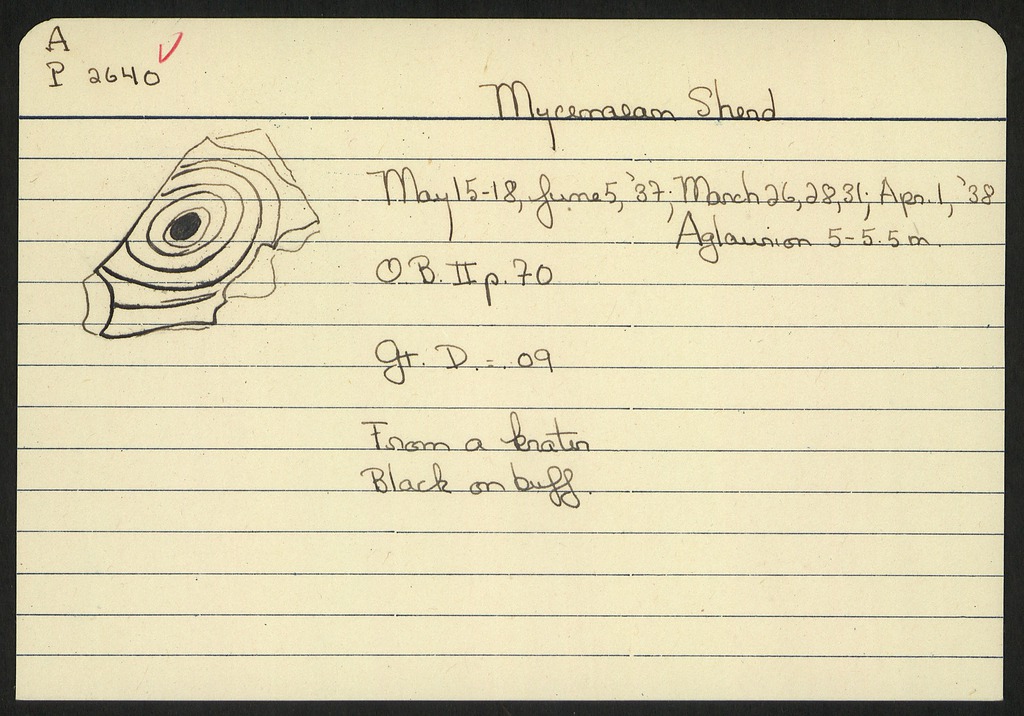 A
P 2640
Mycenaean Sherd
May 15-18, June 5, '37; March 26, 28, 31; Apr. 1, '38
Aglaurion 5-5.5 m.
O.B. II p. 70
Gr. D. = .09
From a krater
Black on buff.